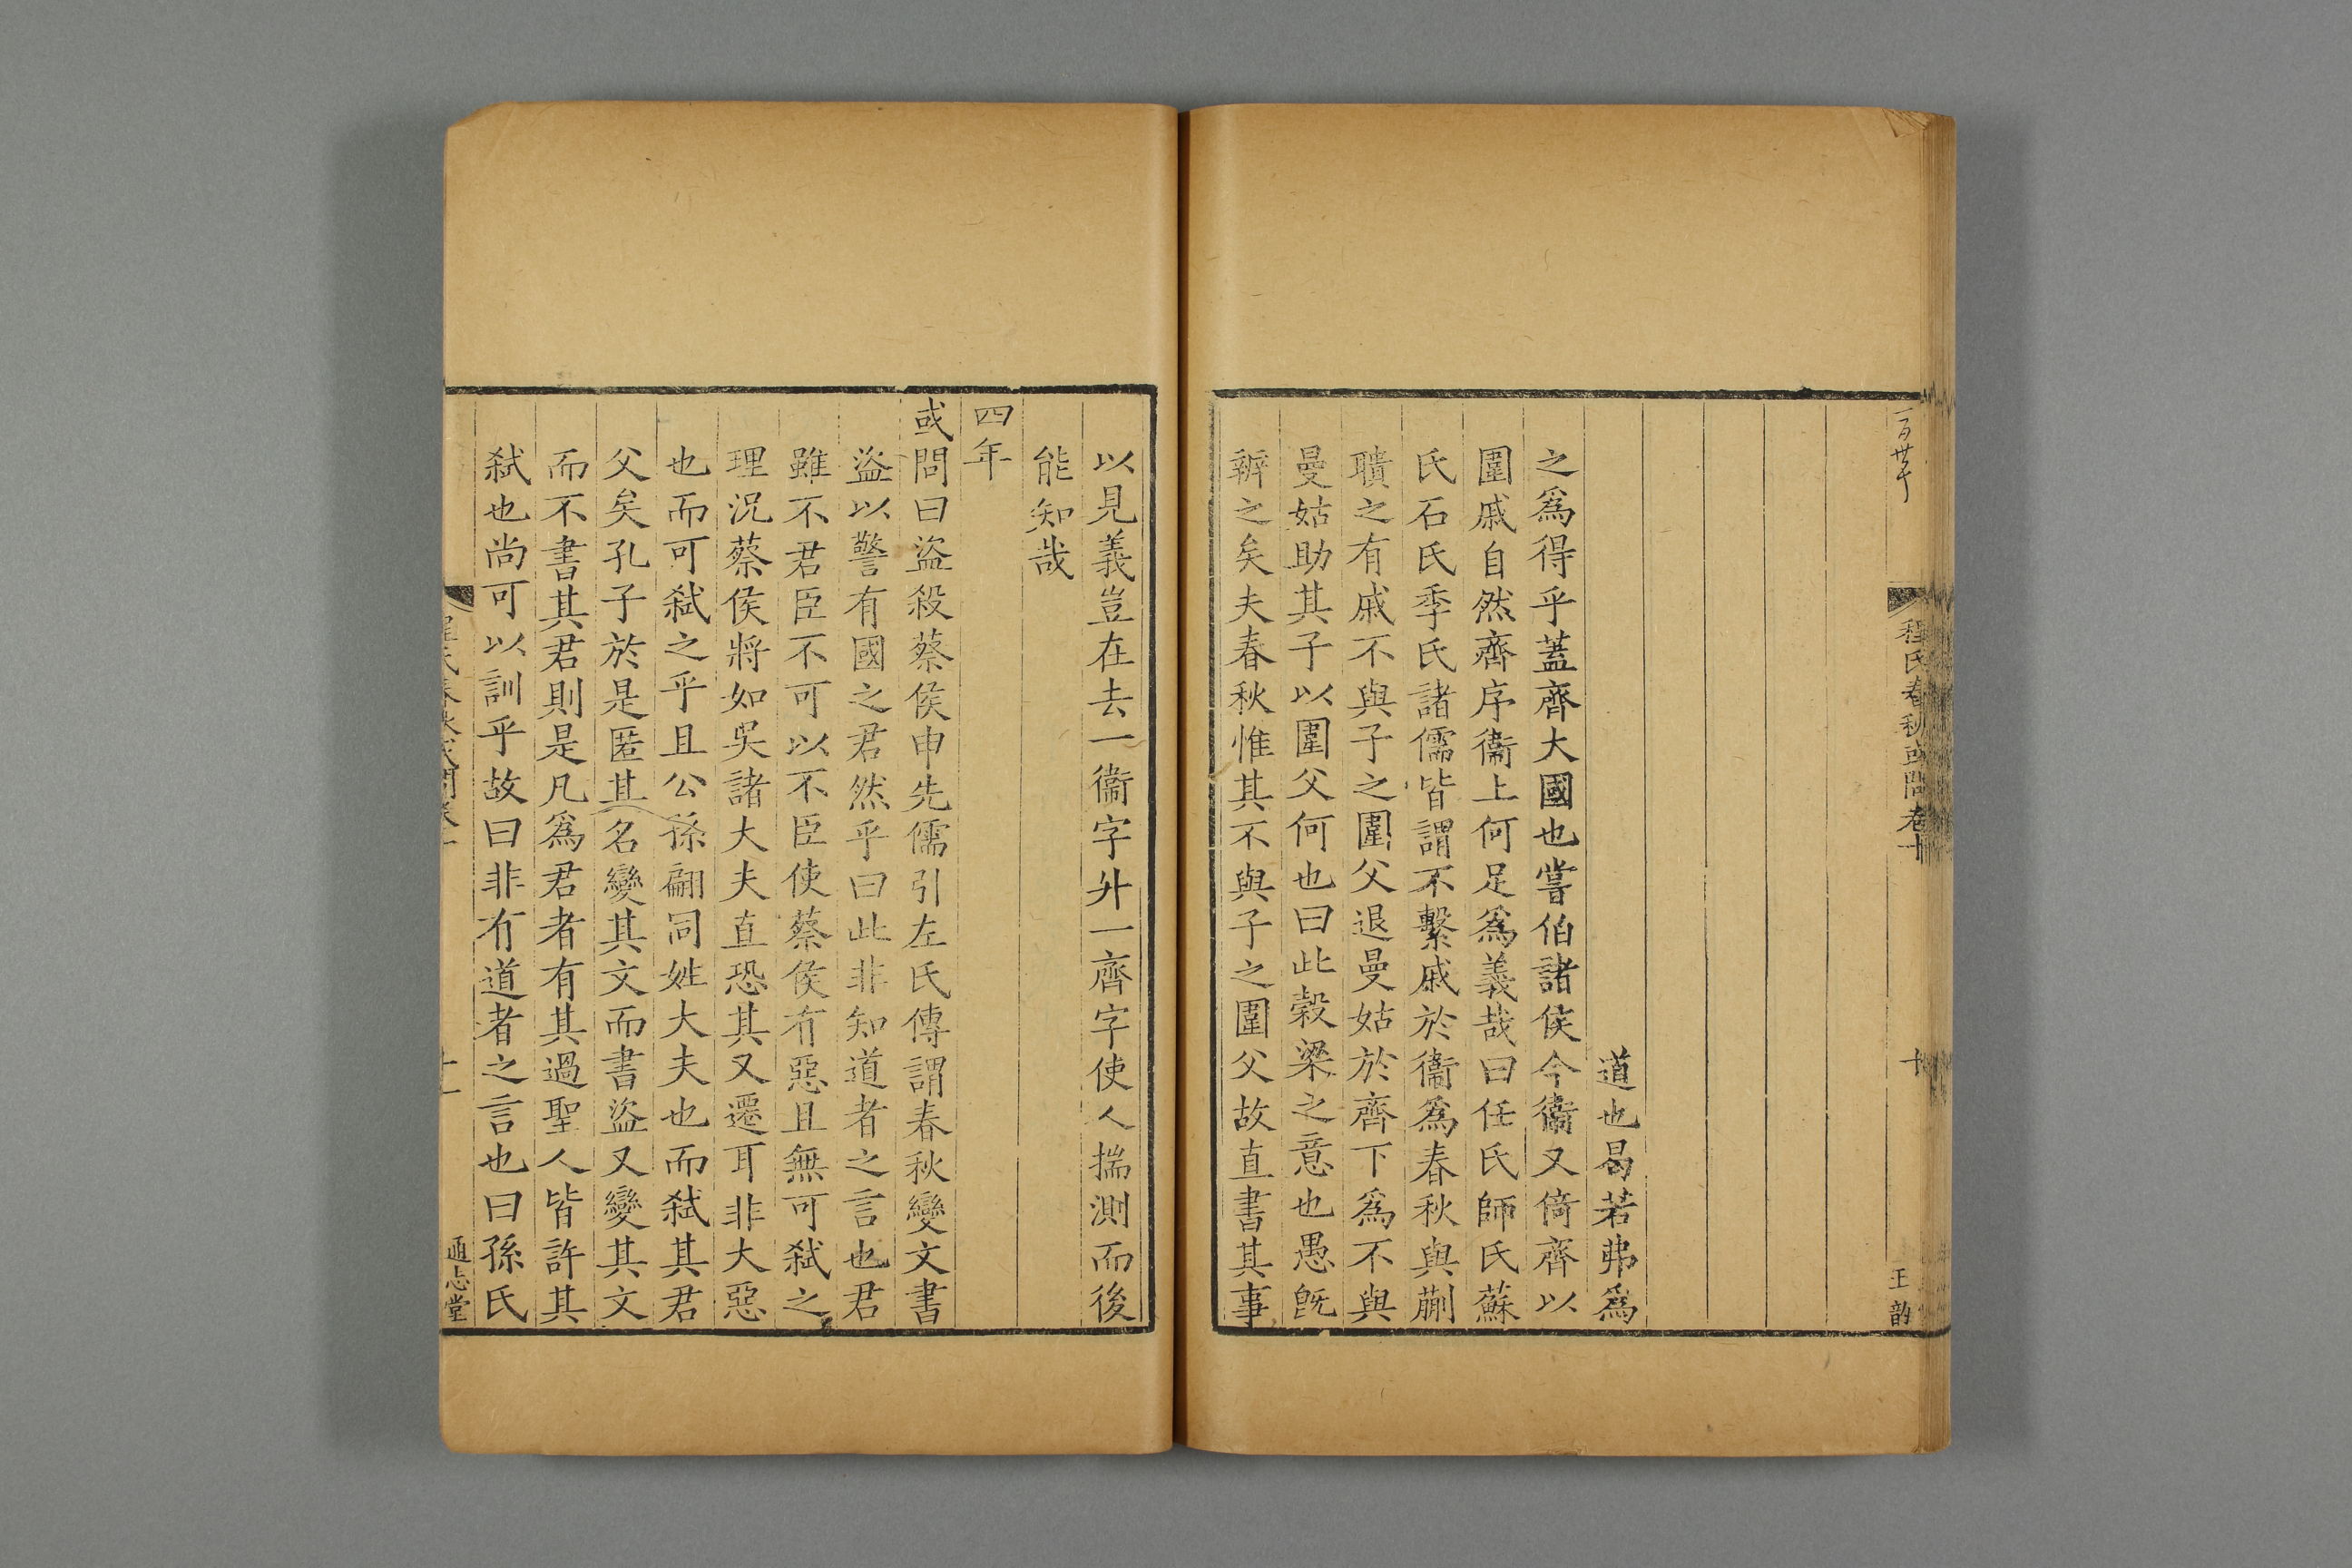 程氏春秋或問卷十
十
王
道也曷若弗爲
之爲得乎蓋齊大國也嘗伯諸侯今衞又倚齊以
圍戚自然齊序衞上何足爲義哉曰任氏師氏蘇
氏石氏季氏諸儒皆謂不繫戚於衞爲春秋與蒯
聵之有戚不與子之圍父退曼姑於齊下爲不與
曼姑助其子以圍父何也曰此榖梁之意也愚旣
辨之矣夫春秋惟其不與子之圍父故直書其事
以見義豈在去一衞字升一齊字使人揣測而後
能知哉
四年
或問曰盜殺蔡侯申先儒引左氏傳謂春秋變文書
盜以警有國之君然乎曰此非知道者之言也君
雖不君臣不可以不臣使蔡侯有惡且無可弑之
理況蔡侯將如吳諸大夫直恐其又遷耳非大惡
也而可弑之乎且公孫翩同姓大夫也而弑其君
父矣孔子於是匿其名變其文而書盜又變其文
而不書其君則是凡爲君者有其過聖人皆許其
弑也尚可以訓乎故曰非有道者之言也曰孫氏
通志堂